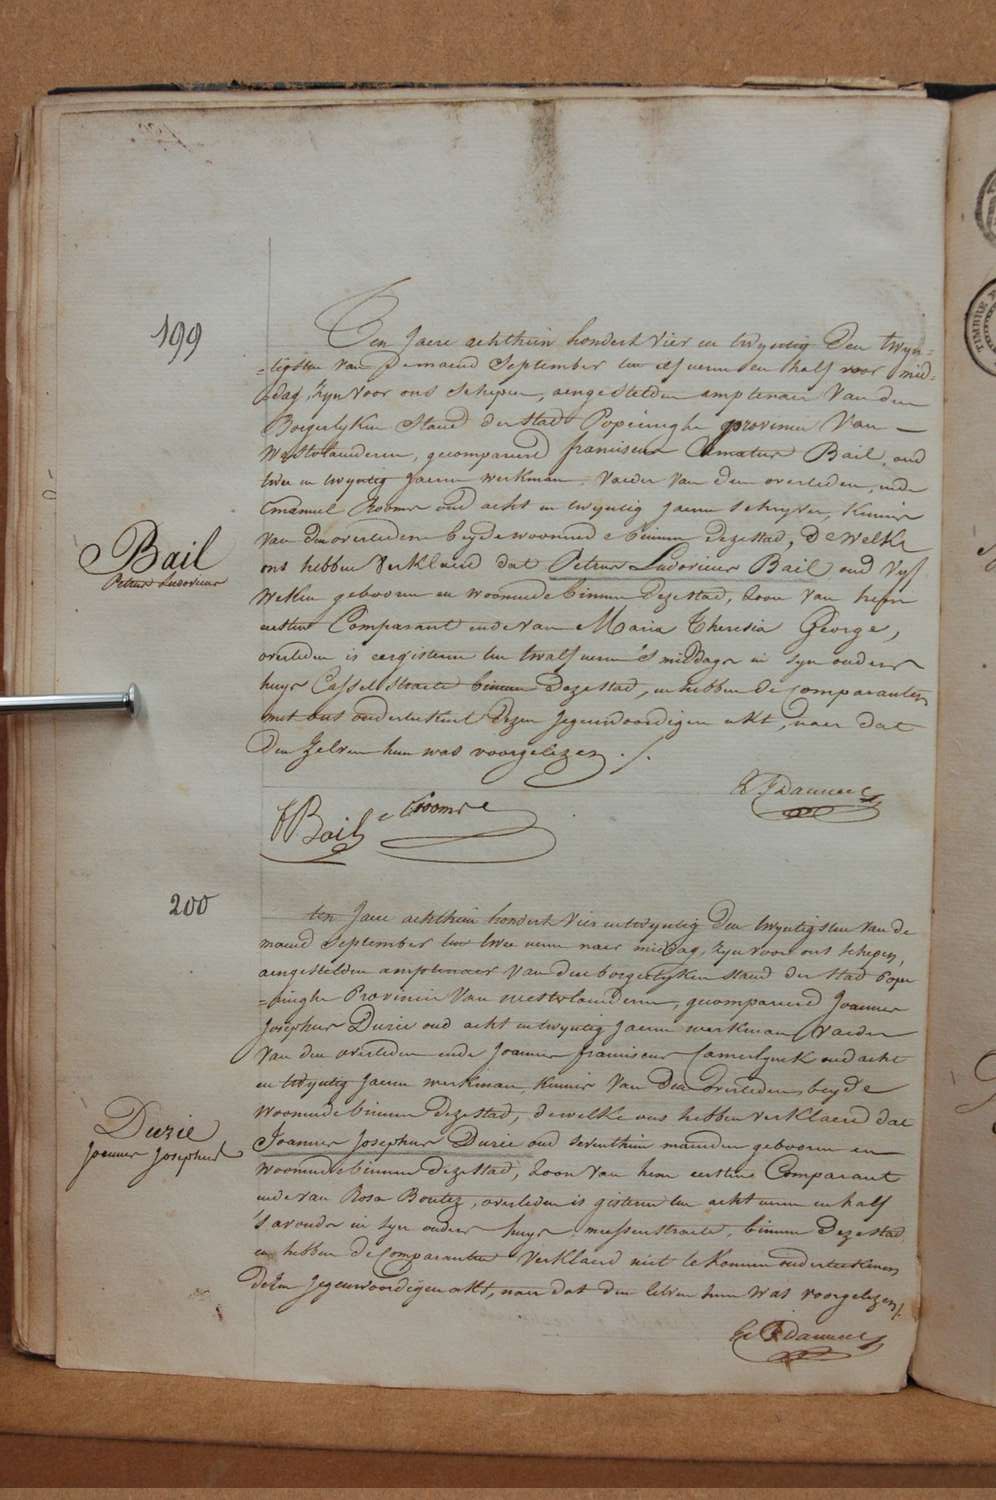 199
Ten Jaere achthien hondert vier en twyntig den twyn-
-tigsten van de maend September ten elf uren en half voor mid-
-dag, zyn voor ons schepen, aengestelden amptenaer van den
Borgerlyken Staed der Stad Poperinghe provincie van —
Westvlaenderen, gecompareerd franciscus Amatus Bail, oud
twee en twyntig Jaeren werkman, vaeder van den overleden, ende
Emanuel Rooms oud acht en twyntig Jaeren schryver, kennis
van den overleden beyde woonende binnen deze stad, de welke
ons hebben verklaerd dat Petrus Ludovicus Bail oud vyf
Weken gebooren en woonende binnen deze stad, zoon van hem
eersten Comparant ende van Maria Theresia George,
overleden is eergisteren ten twalf uren 's middags in syn ouders
huys Casselstraete binnen deze stad, en hebben de comparanten
met ons onderteekent dezen jegenwoordigen akt, naer dat
den zelven hun was voorgelezen ./.
Bail
Petrus Ludovicus
F Bail E Rooms
200
ten Jaere achthien hondert vier en twyntig den twyntigsten van de
maend September ten twee uren naer middag, zyn voor ons schepen,
aengestelden amptenaer van den borgerlyken staed der stad Pope-
-ringhe Provincie van westvlaenderen, gecompareerd Joannes
Josephus Durie oud acht en twyntig jaeren werkman, vaeder
van den overleden ende Joannes franciscus Camerlynck oud acht
en twyntig jaeren werkman, kennis van den overleden, beyde
woonende binnen deze stad, dewelke ons hebben verklaerd dat
Joannes Josephus Durie oud seventhien maenden gebooren en
woonende binnen deze stad, zoon van hem eersten Comparant
ende van Rosa Boutez, overleden is gisteren ten acht uren en half
's avonds in syn ouders huys messenstraete, binnen deze stad
en hebben de Comparanten verklaerd niet te konnen onderteekenen
dezen jegenwoordigen akt, naer dat den zelven hun was voorgelezen ./.
Durie
Joannes Josephus
TIMBRE